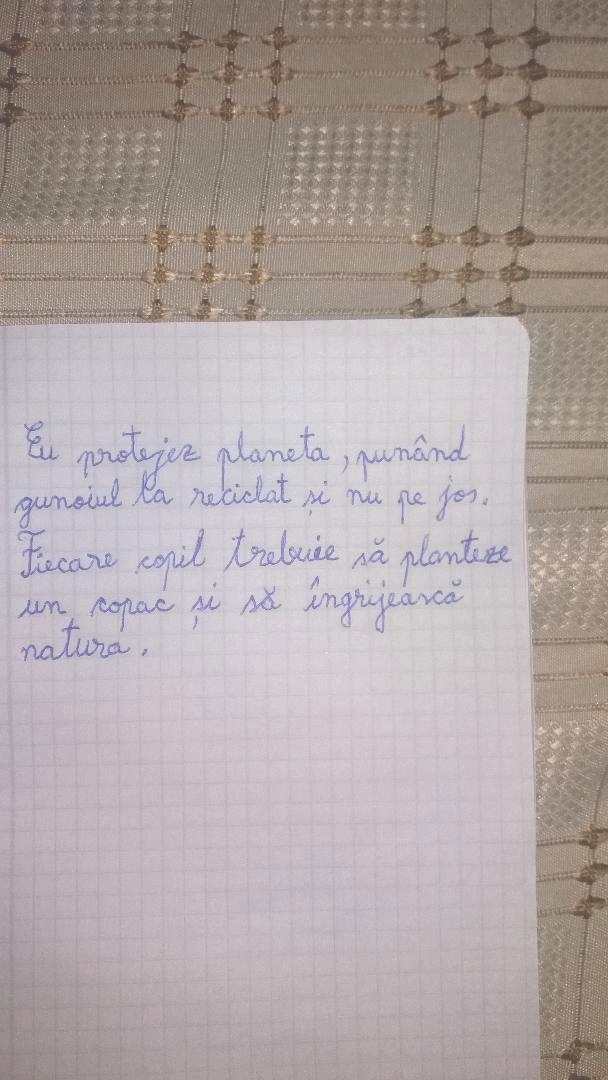 Eu protejez planeta, punând
gunoiul la reciclat și nu pe jos.
Fiecare copil trebuie să planteze
un copac și să îngrijească
natura.